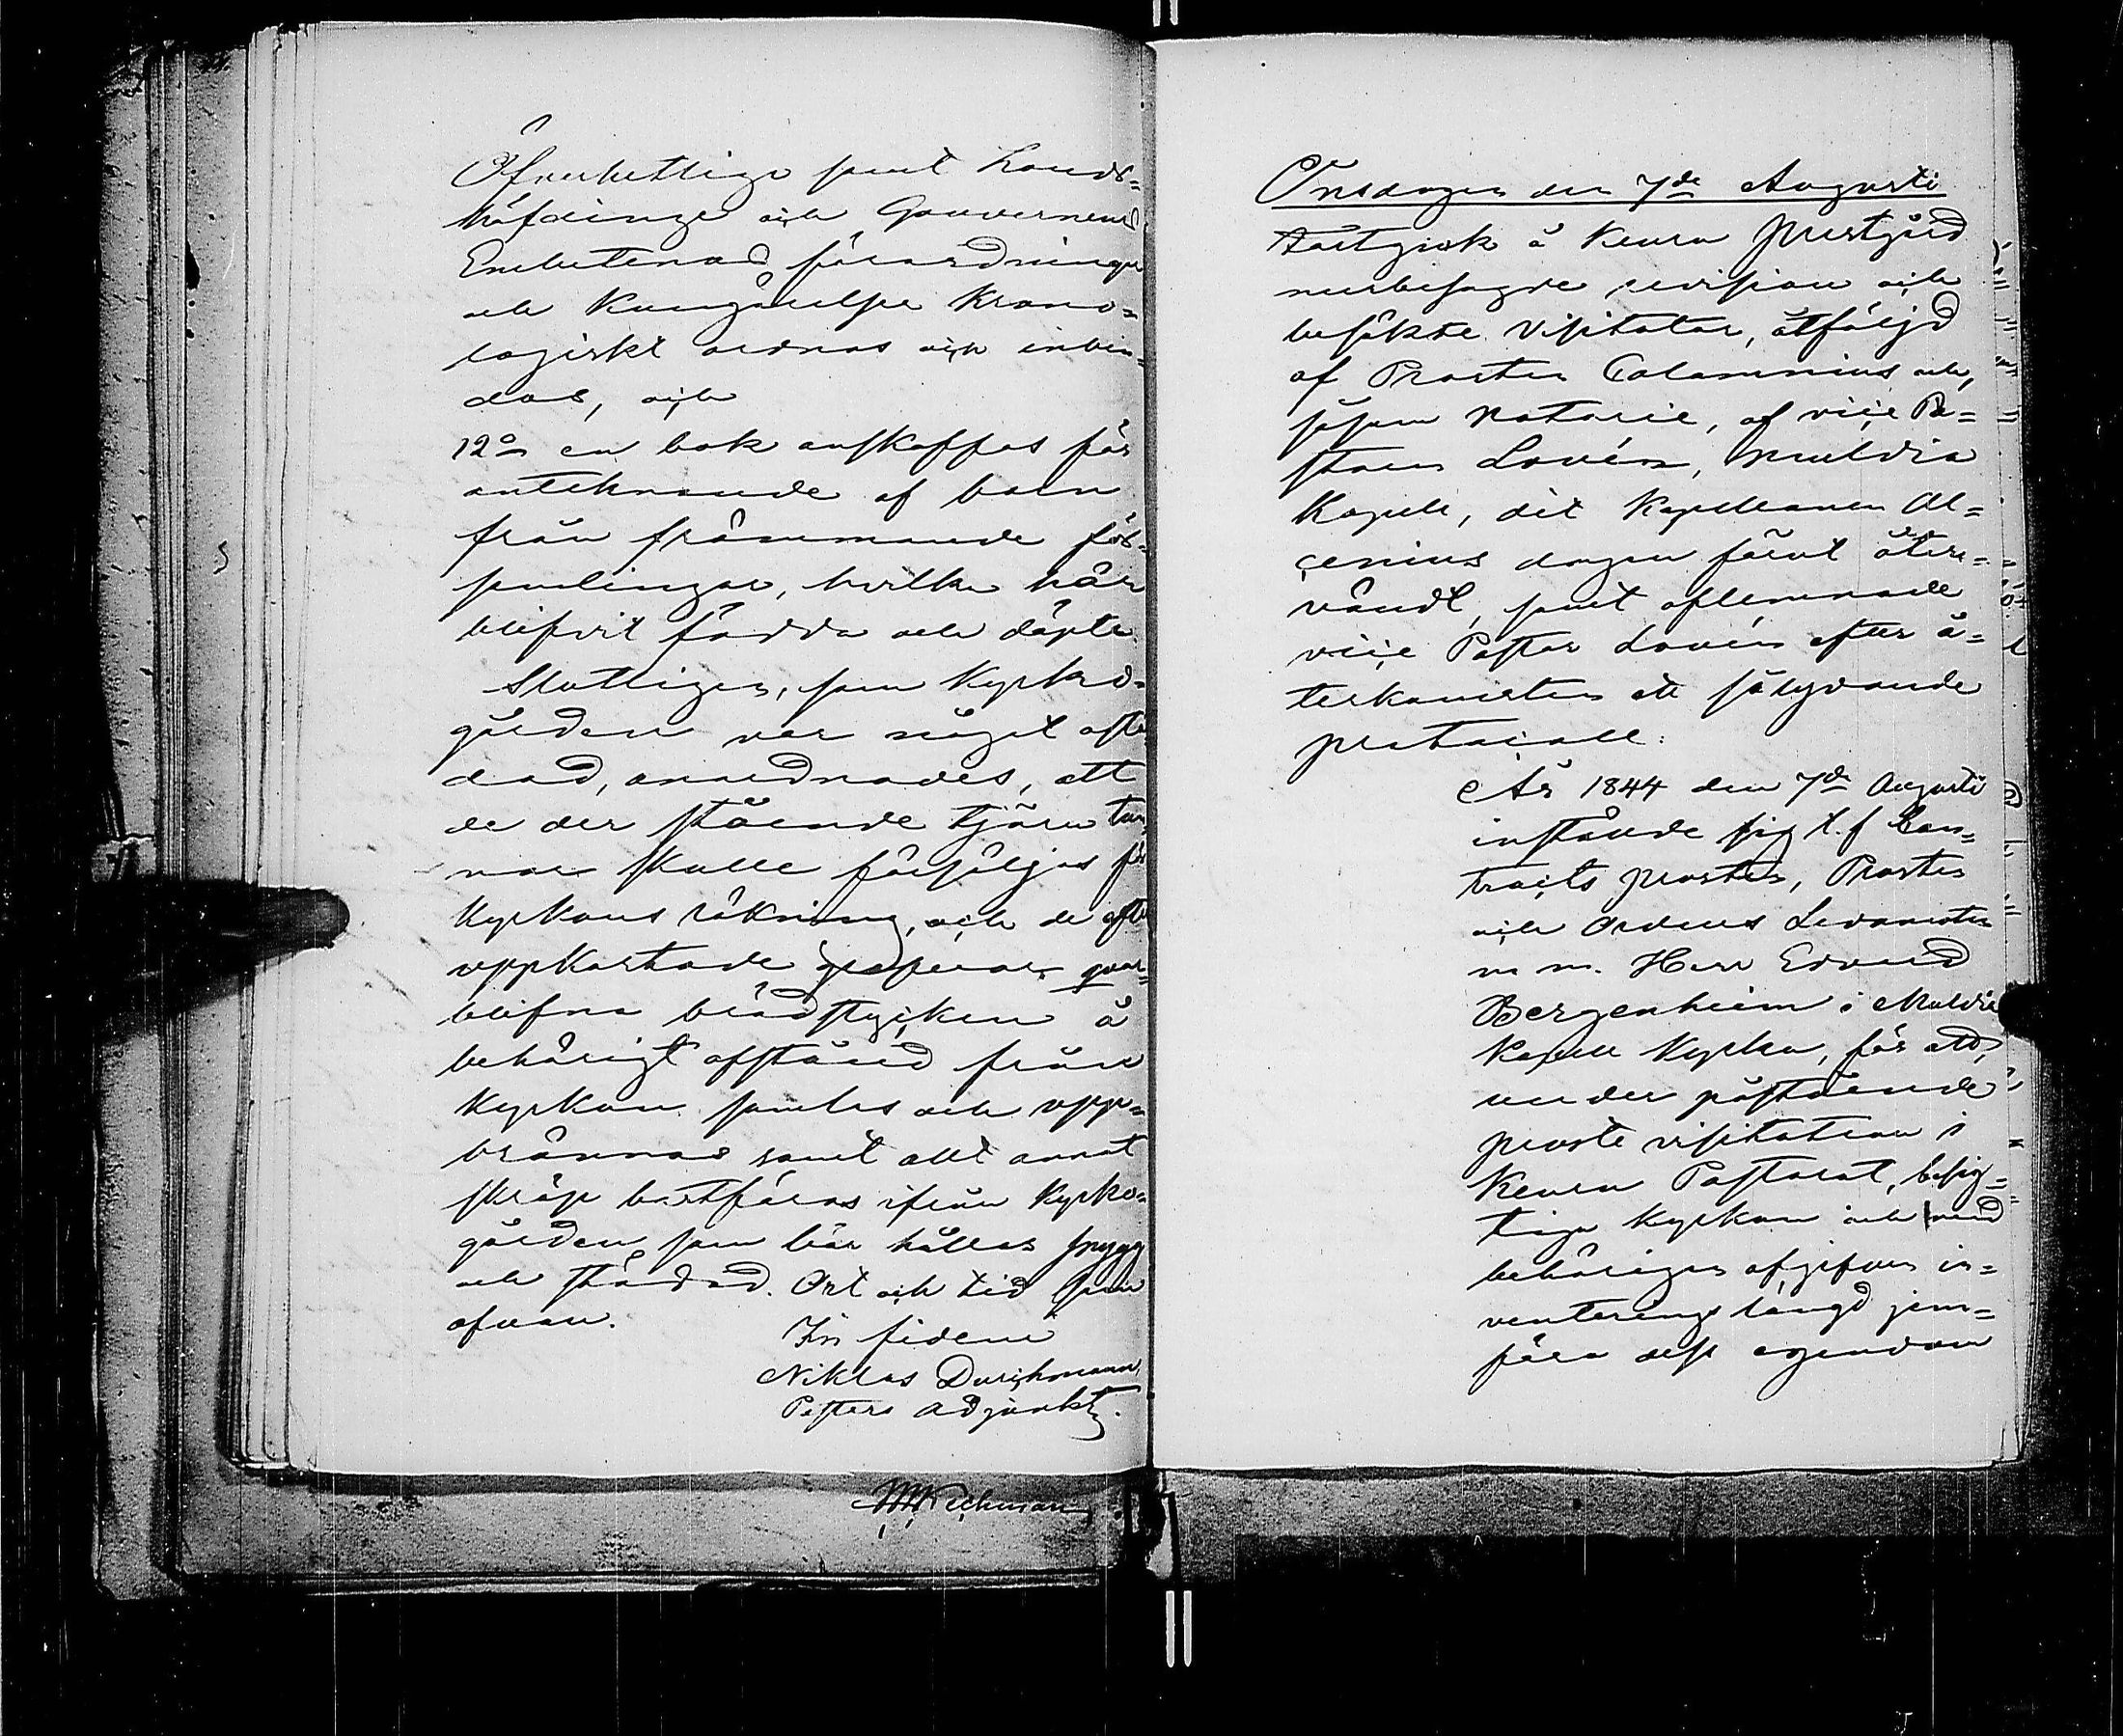 Öfverhettliga samt Lands=
höfdinge och Gouverneurs
Embetenas förordningar
och Kungörelser krono=
logiskt ordnas och inbin=
das, och
12o en bok anskaffas för
antecknande af barn
från främmande för=
samlingar, hvilka här
blifvit födda och döpta.
Slutligen, som Kyrko=
gården var något oste=
dad, anordnades, att
de der stående tjäru tun=
nor skulle försäljas för
Kyrkans räkning, och de efter
uppkastade grafvar qvar=
blifna brädstycken å
behörigt afstånd från
Kyrkan samlas och upp=
brännas samt allt annat
skräp bortföras ifrån Kyrko=
gården som bör hållas snygg
och städad. Ort och tid som
ofvan.
In fidem
Niklas Durchman
Pastors adjunkt.
5
Onsdagen den 7de Augusti
företogs å Kemi Prestgård
merbesagde revision och
besökte Visitator, åtföljd
af Prosten Calamnius och,
såsom Notarie, af vice Pa=
storn Lovén, Muldia
Kapell, dit Kapellanen Al=
cenius dagen förut åter=
vändt, samt aflemnade
vice Pastor Lovén efter å=
terkomsten ett sålydande
protocoll:
År 1844 den 7de Augusti
instälde sig t. f Con=
tracts prosten, Prosten
och Ordens Ledamoten
m m. Herr Edvard
Bergenheim i Muldia
Kapell Kyrka, för att,
under påstående
proste visitation i
Kemi Pastorat, besig=
tiga Kyrkan och med
behörigen afgifven in=
venterings längd jem=
föra dess egendom